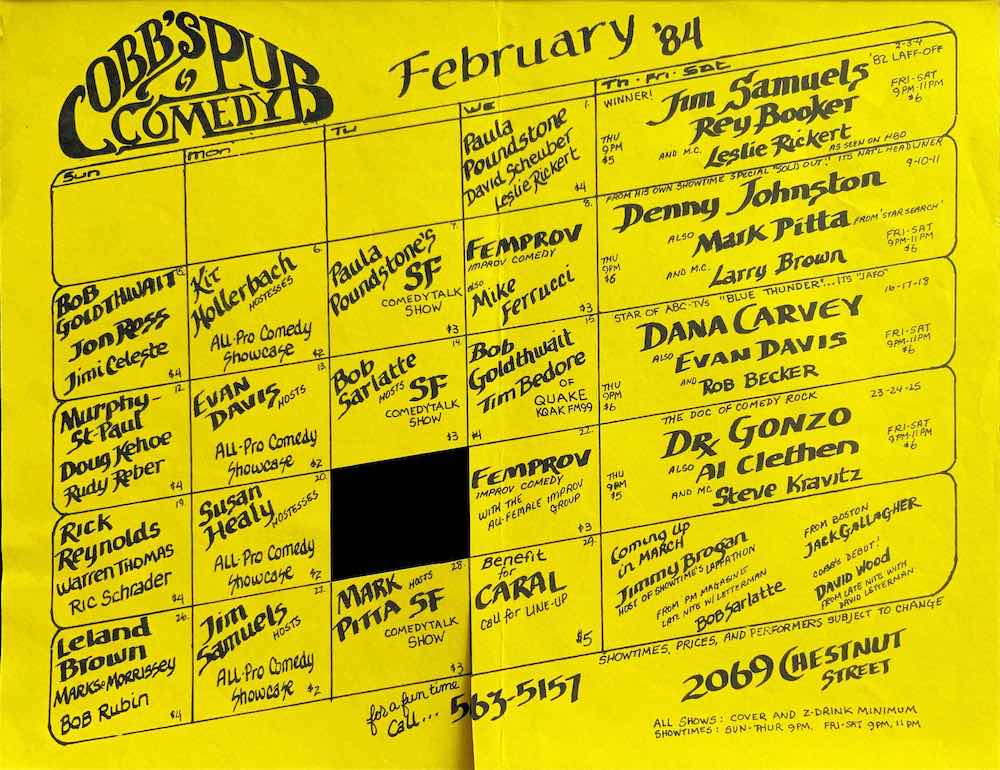 COBB'S PUB
COMEDY
February '84
Sun
mon
Tu
We
Th·Fri·Sat
1.
Paula
Poundstone
David Scheuber
Leslie Rickert
$4
2-3-4
WINNER! '82 LAFF-OFF
Jim Samuels
Rey Booker
AND M.C. Leslie Rickert
THU
9PM
$5
FRI-SAT
9PM-11PM
$6
5.
BOB
GOLDTHWAIT
Jon Ross
Jimi Celeste
$4
6.
Kit
Hollerbach
HOSTESSES
ALL-PRO Comedy
Showcase
$2
7.
Paula
Poundstone's
SF
COMEDYTALK
SHOW
$3
8.
FEMPROV
IMPROV COMEDY
also
Mike
Ferrucci
$3
AS SEEN ON HBO
FROM HIS OWN SHOWTIME SPECIAL "SOLD OUT!" ITS NAT'L HEADLINER
9-10-11
Denny Johnston
ALSO Mark Pitta FROM 'STAR SEARCH'
AND M.C. Larry Brown
THU
9PM
$6
FRI-SAT
9PM-11PM
$6
12.
Murphy-
St. Paul
Doug Kehoe
Rudy Reber
$4
13.
EVAN
DAVIS HOSTS
ALL-Pro Comedy
Showcase
$2
14.
Bob
Sarlatte
HOSTS SF
COMEDYTALK
SHOW
$3
15.
Bob
Goldthwait
Tim Bedore
OF
QUAKE
KQAK FM99
$4
STAR OF ABC-TVs, "BLUE THUNDER"... ITS "JAFO"
16-17-18
DANA CARVEY
ALSO EVAN DAVIS
AND ROB BECKER
THU
9PM
$6
FRI-SAT
9PM-11PM
$6
19.
RICK
Reynolds
WARREN THOMAS
RIC Schrader
$4
20.
Susan
Healy HOSTESSES
ALL-Pro Comedy
Showcase
$2
22.
FEMPROV
IMPROV COMEDY
WITH THE
ALL-FEMALE IMPROV
GROUP
$3
THE DOC OF COMEDY ROCK
23-24-25
DR. GONZO
ALSO Al Clethen
AND MC Steve Kravitz
THU
9PM
$5
FRI-SAT
9PM-11PM
$6
26.
Leland
Brown
MARKS & MORRISSEY
BOB RUBIN
$4
27.
Jim
Samuels
HOSTS
ALL-Pro Comedy
Showcase
$2
28.
MARK HOSTS
PITTA SF
COMEDYTALK
SHOW
$3
29.
Benefit
for
CARAL
Call for LINE-UP
$5
Coming Up
in MARCH
Jimmy Brogan
HOST OF SHOWTIME'S LAFFATHON
FROM PM MAGAZINE
LATE NITE W/ LETTERMAN
BOB SARLATTE
FROM BOSTON
JACK GALLAGHER
COBB'S DEBUT!
DAVID WOOD
FROM LATE NITE WITH
DAVID LETTERMAN
SHOWTIMES, PRICES, AND PERFORMERS SUBJECT TO CHANGE
for a fun time
Call... 563-5157
2069 CHESTNUT
STREET
ALL SHOWS: COVER AND 2-DRINK MINIMUM
SHOWTIMES: SUN-THUR 9PM, FRI-SAT 9PM, 11PM